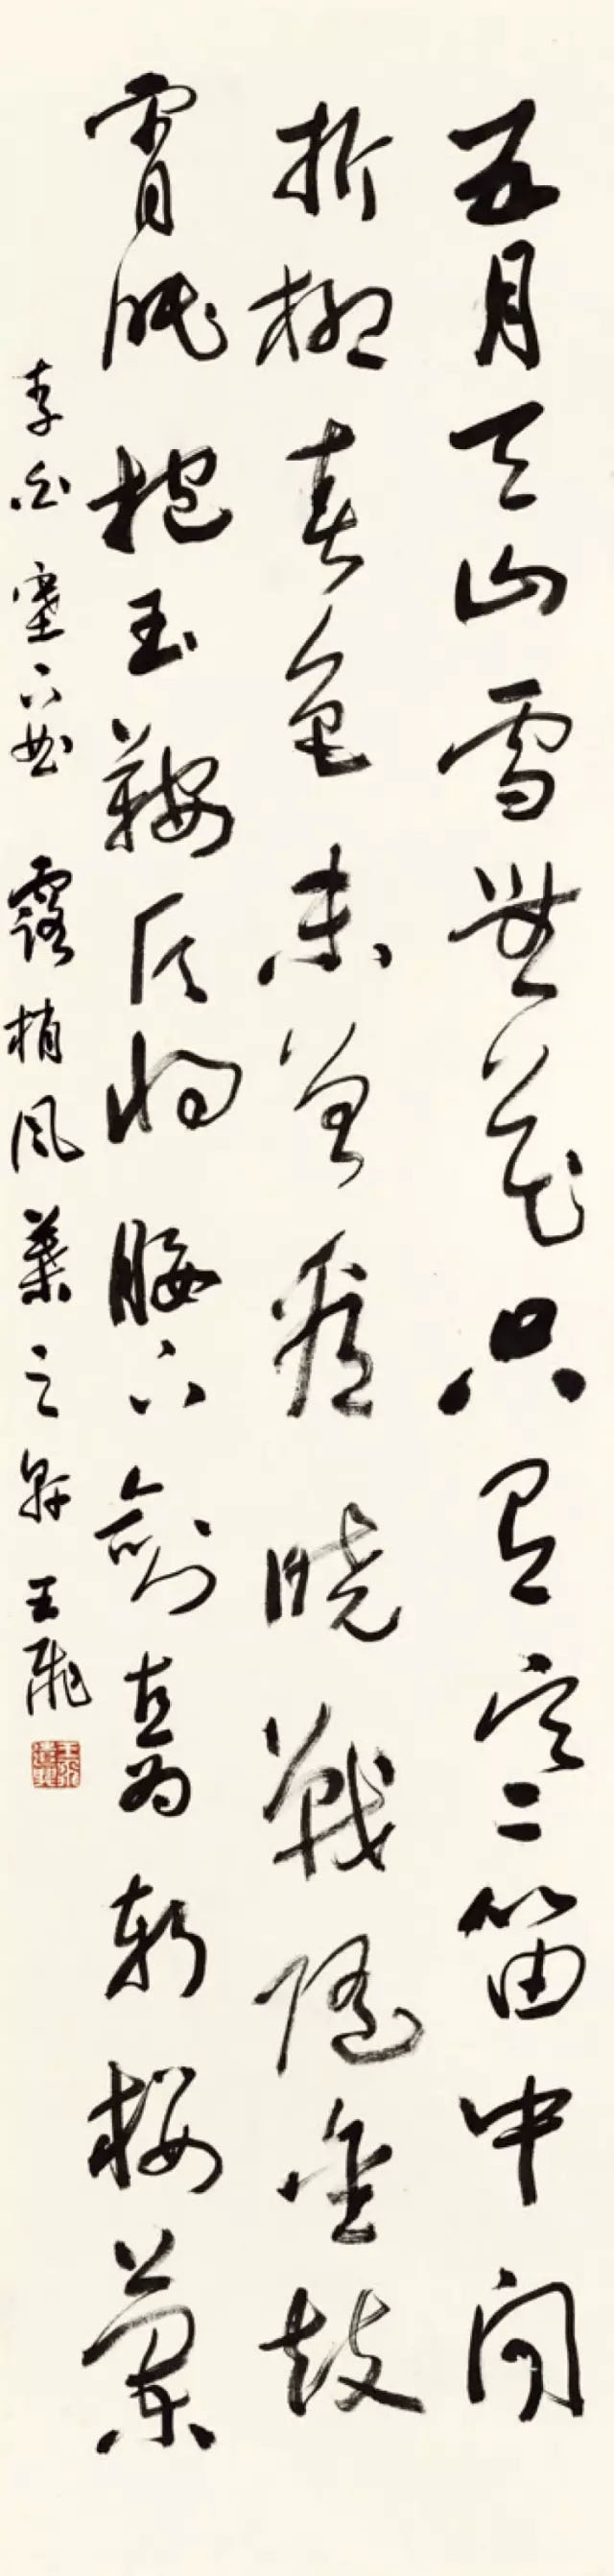 五月天山雪無花只有寒笛中聞
折柳春色未曾看曉戰隨金鼓
宵眠抱玉鞍願將腰下劍直為斬樓蘭
李白塞下曲 露梢風葉之軒 王